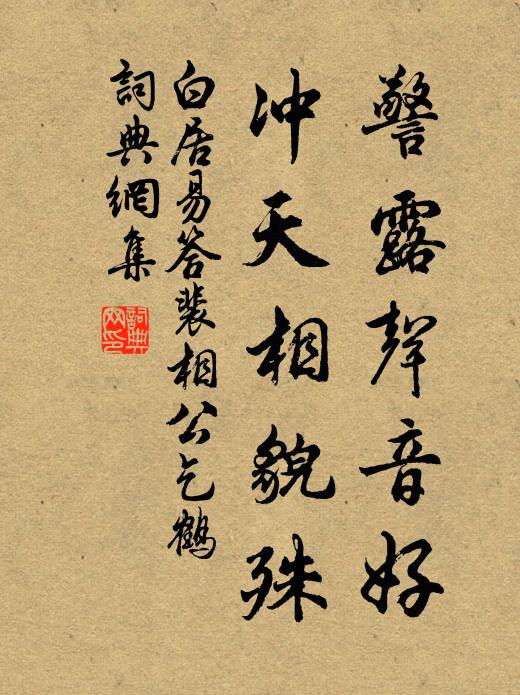 警露聲音好
冲天相貌殊
白居易答裴相公乞鶴
詞典網集
詞典
网印